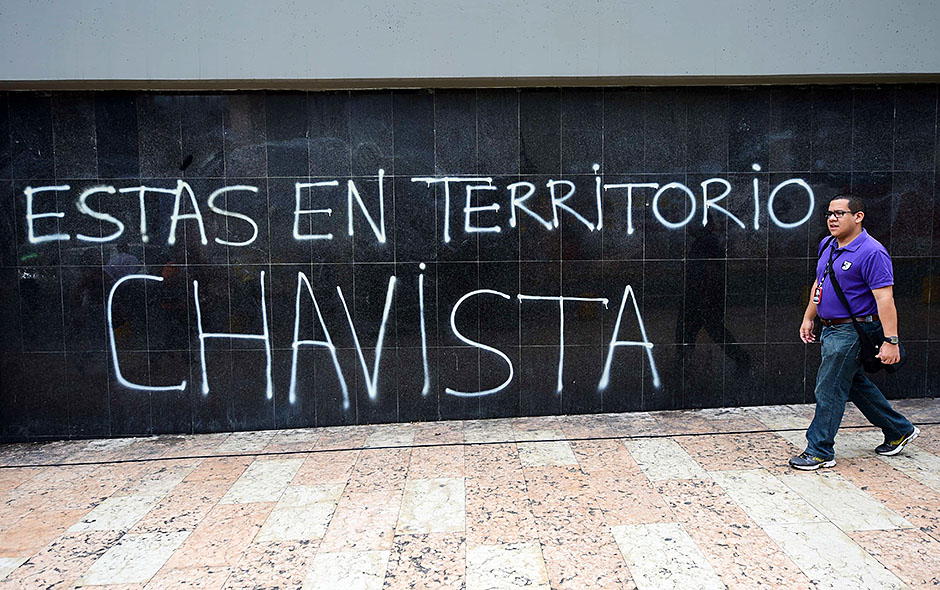 ESTAS EN TERRITORIO
CHAVISTA